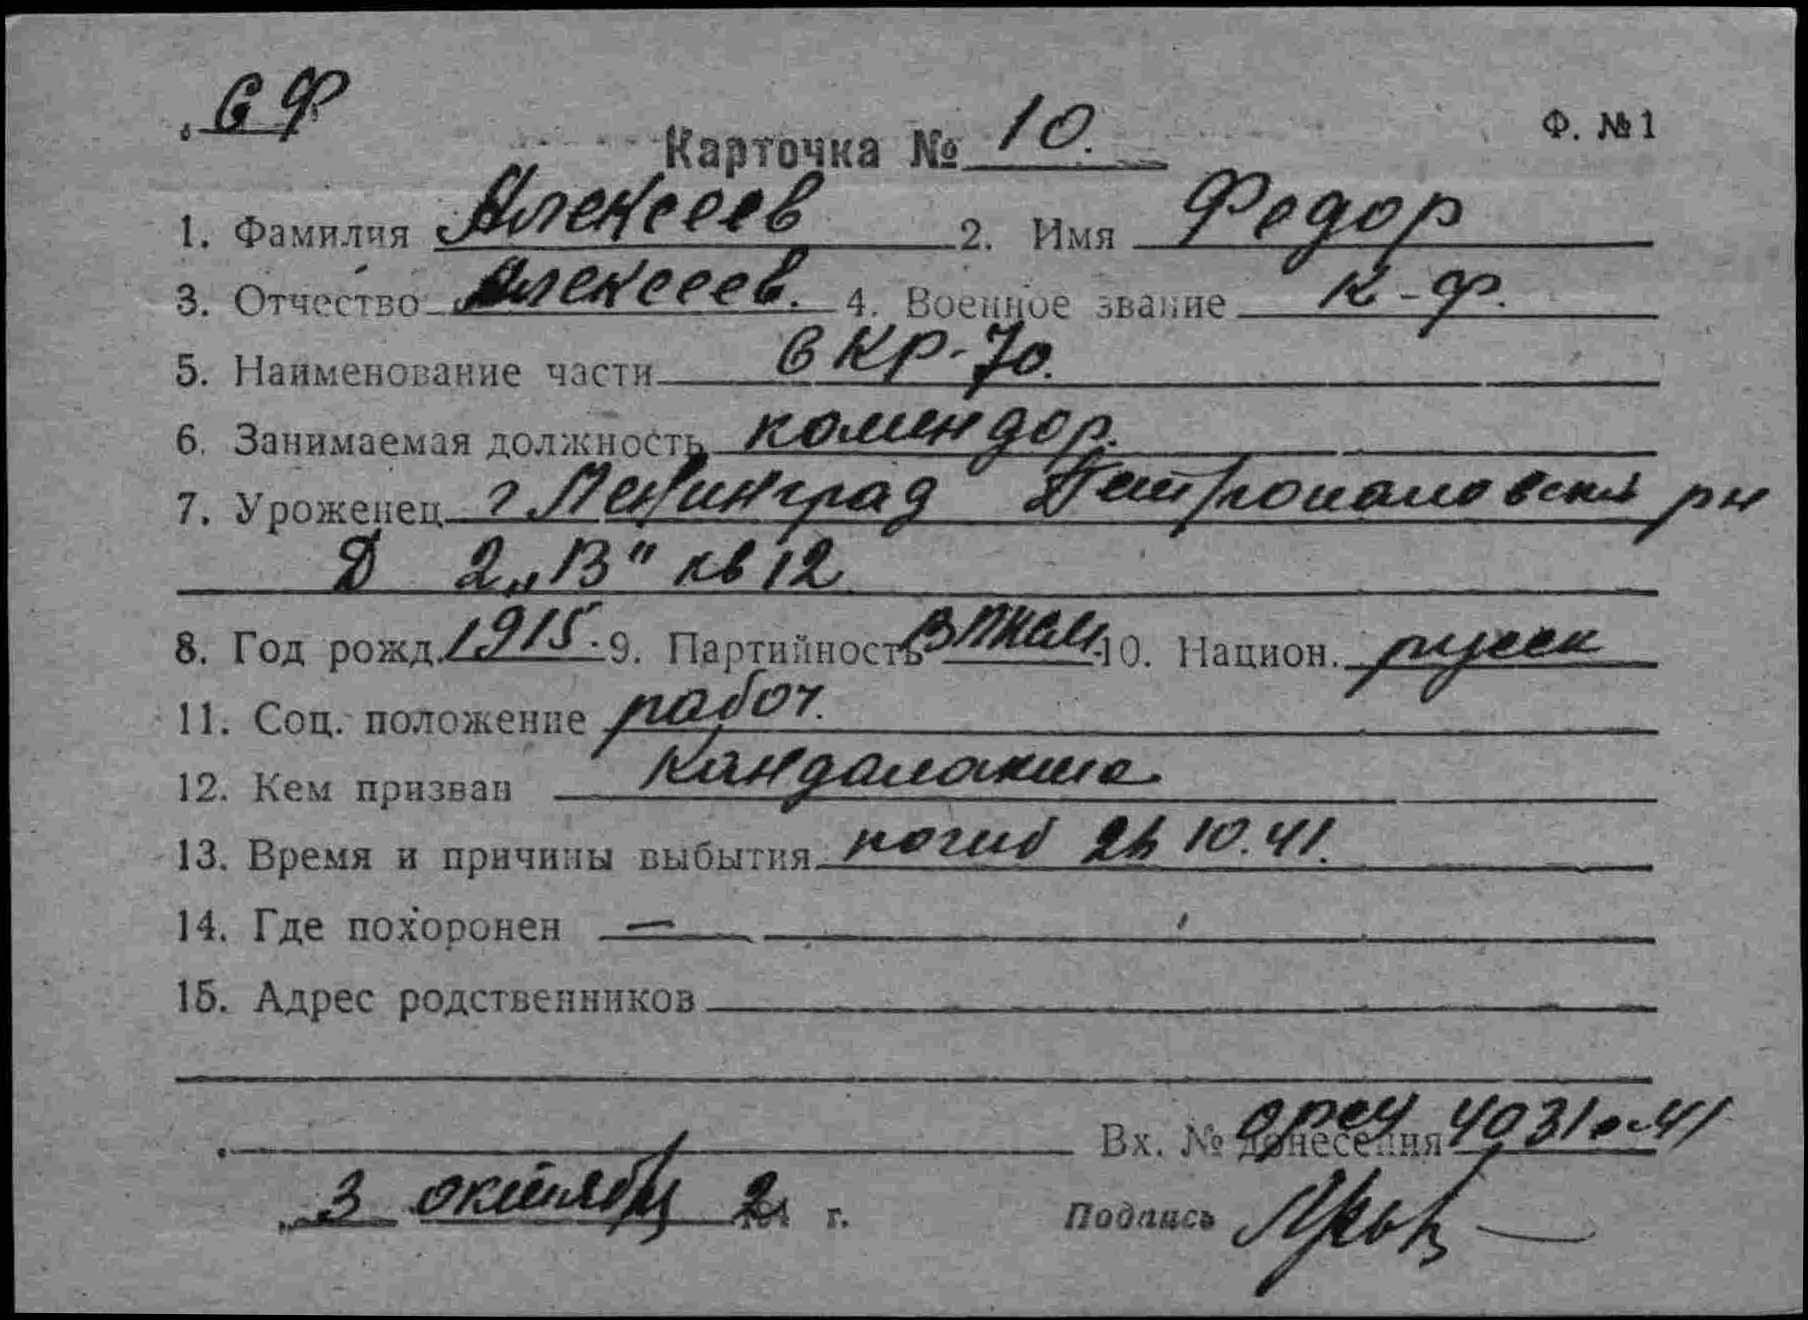 СФ
Ф. №1
Карточка № 10.
1. Фамилия Алексеев 2. Имя Федор
3. Отчество Алексеев. 4. Военное звание к-ф.
5. Наименование части СКР-70.
6. Занимаемая должность комендор.
7. Уроженец г Ленинград рн
Д 2 „В" кв 12
8. Год рожд. 1915. 9. Партийность ВЛКСМ. 10. Национ. русск
11. Соц. положение рабоч.
12. Кем призван Кандалакша
13. Время и причины выбытия погиб 10.41.
14. Где похоронен —
15. Адрес родственников
Вх. № донесения
3 октября г. Подпись